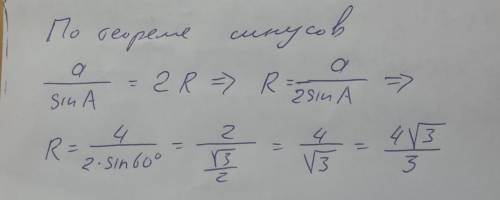 По теореме синусов
a/sin A = 2R => R = a/2sin A =>
R = 4/2·sin60° = 2/(√3/2) = 4/√3 = 4√3/3